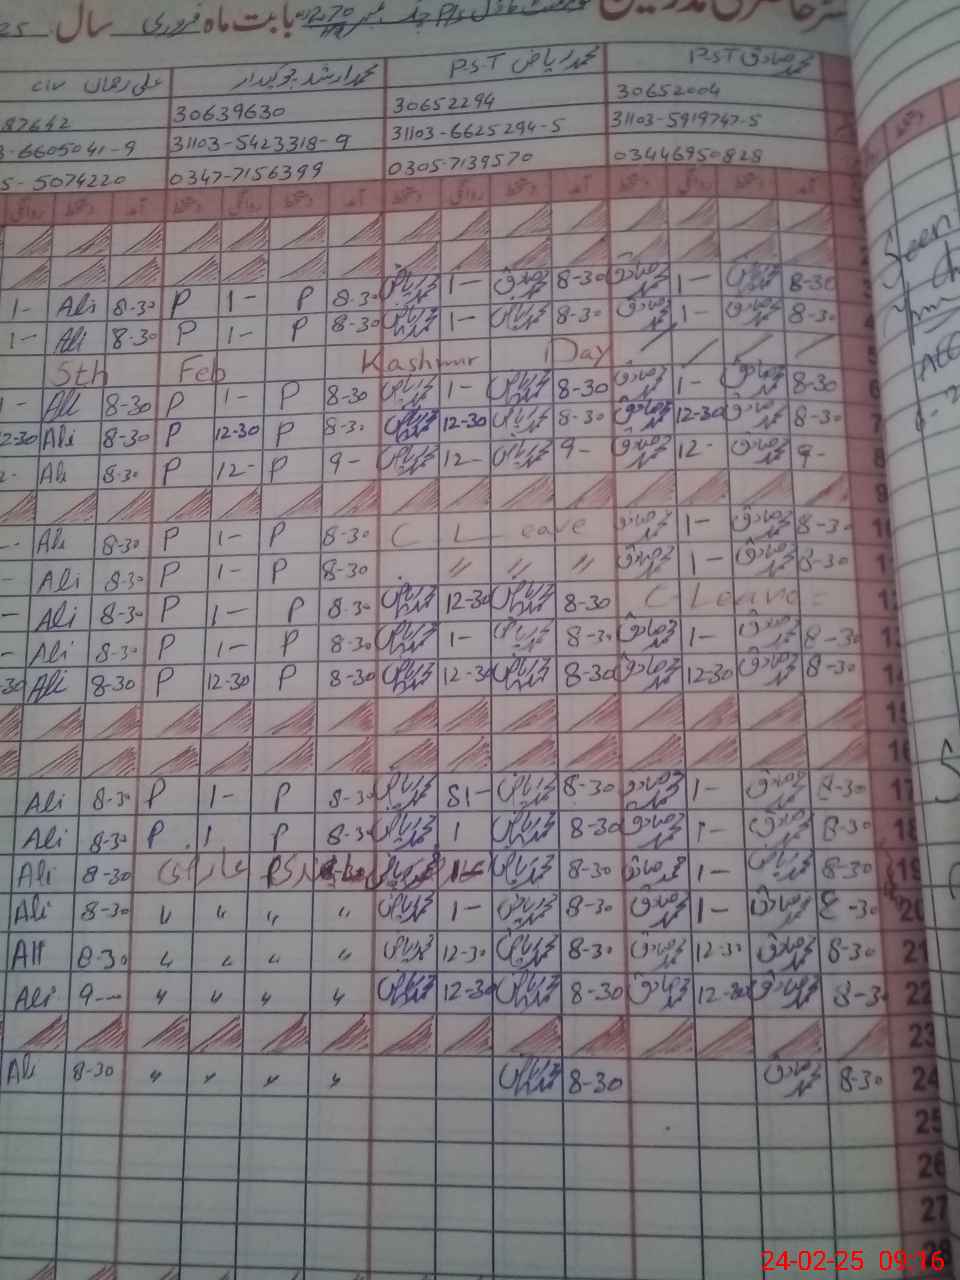 حاضری مدرسین بابت ماہ فروری سال 25
محمد صادق P.S.T محمد ریاض P.S.T محمد ارشد چوکیدار علی رحمان CIV
30652004 30652294 30639630 87642
31103-5919747-5 31103-6625294-5 31103-5423318-9 3-6605041-9
03446950828 0305-7139570 0347-7156399 5-5074220
آمد دستخط روانگی دستخط آمد دستخط روانگی دستخط آمد دستخط روانگی دستخط آمد دستخط روانگی
1- Ali 8-30 P 1- P 8-30 محمد ریاض 1- محمد صادق 8-30 محمد صادق 1- محمد ریاض 8-30
1- Ali 8-30 P 1- P 8-30 محمد ریاض 1- محمد ریاض 8-30 محمد صادق 1- محمد صادق 8-30 4
5th Feb Kashmir Day 5
1- Ali 8-30 P 1- P 8-30 محمد ریاض 1- محمد ریاض 8-30 محمد صادق 1- محمد صادق 8-30 6
12-30 Ali 8-30 P 12-30 P 8-30 محمد ریاض 12-30 محمد ریاض 8-30 محمد صادق 12-30 محمد صادق 8-30 7
2- Ali 8-30 P 12- P 9- محمد ریاض 12- محمد ریاض 9- محمد صادق 12- محمد صادق 9- 8
9
Ali 8-30 P 1- P 8-30 C L eave محمد صادق 1- محمد صادق 8-30
Ali 8-30 P 1- P 8-30 " " " محمد صادق 1- محمد صادق 8-30
Ali 8-30 P 1- P 8-30 محمد ریاض 12-30 محمد ریاض 8-30 C-Leave
Ali 8-30 P 1- P 8-30 محمد ریاض 1- محمد ریاض 8-30 محمد صادق 1- محمد صادق 8-30
30 Ali 8-30 P 12-30 P 8-30 محمد ریاض 12-30 محمد ریاض 8-30 محمد صادق 12-30 محمد صادق 8-30
15
16
Ali 8-30 P 1- P 8-30 محمد ریاض 1- محمد ریاض 8-30 محمد صادق 1- محمد صادق 8-30 17
Ali 8-30 P 1 P 8-30 محمد ریاض 1 محمد ریاض 8-30 محمد صادق 1- محمد صادق 8-30 18
Ali 8-30 محمد ریاض 8-30 محمد صادق 1- محمد ریاض 8-30 19
Ali 8-30 " " " " محمد ریاض 1- محمد ریاض 8-30 محمد صادق 1- محمد صادق 8-30 20
Ali 8-30 " " " " محمد ریاض 12-30 محمد ریاض 8-30 محمد صادق 12-30 محمد صادق 8-30 21
Ali 9- " " " " محمد ریاض 12-30 محمد ریاض 8-30 محمد صادق 12-30 محمد صادق 8-30 22
23
Ali 8-30 " " " " محمد ریاض 8-30 محمد صادق 8-30 24
25
26
27
28
Seen
24-02-25 09:16